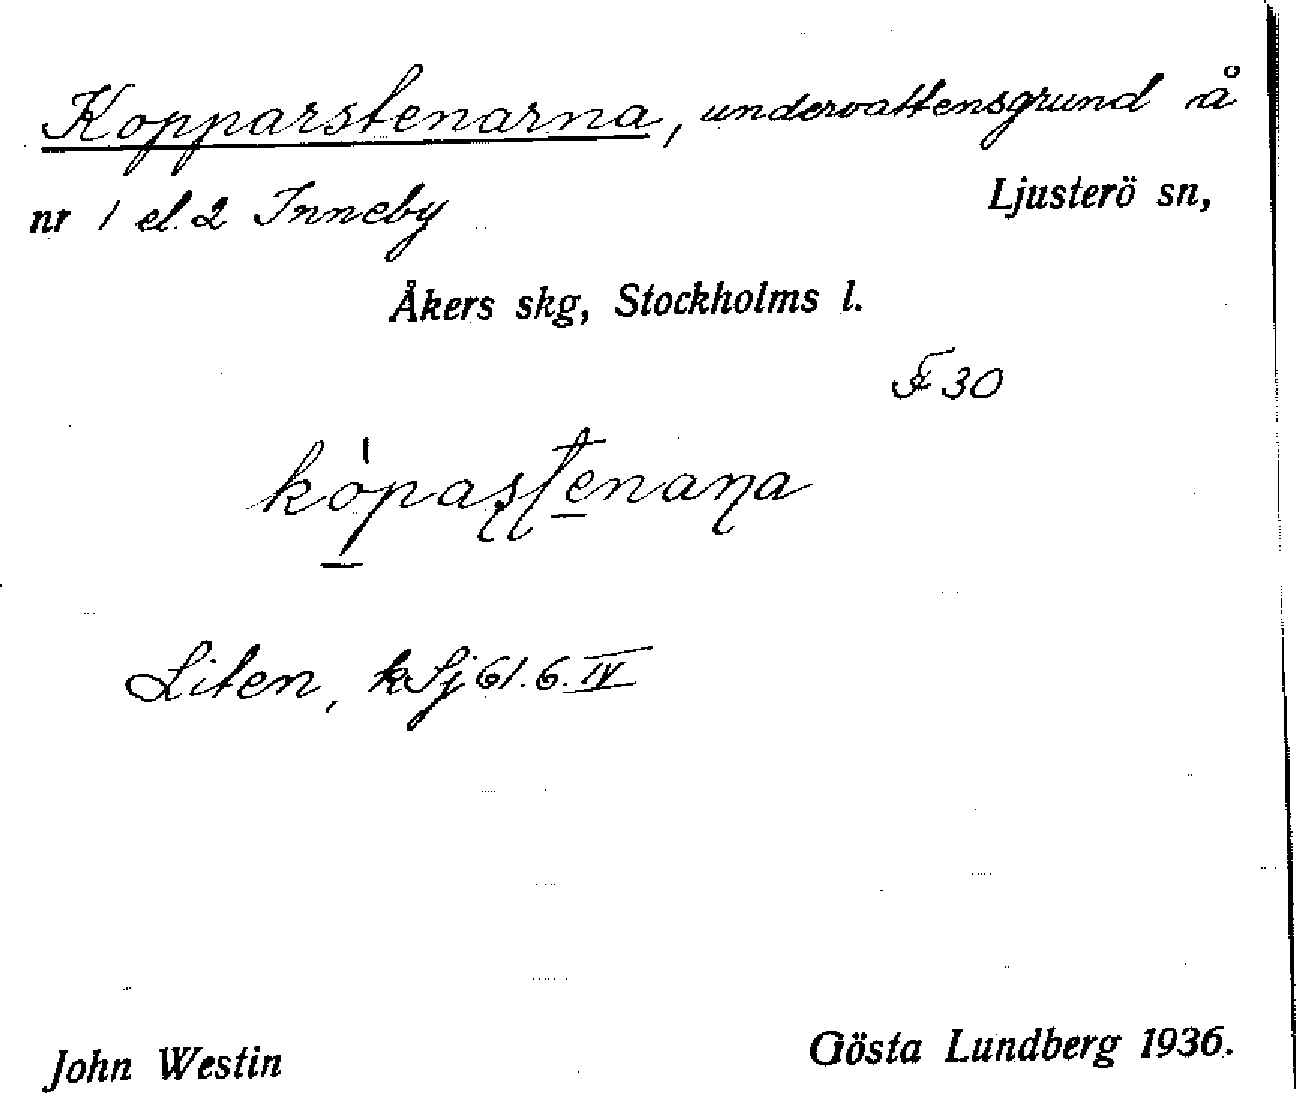 Kopparstenarna, undervattensgrund å
nr 1 el. 2 Inneby Ljusterö sn,
Åkers skg, Stockholms l.
F 30
Liten, kSj 61.6.IV
John Westin Gösta Lundberg 1936.